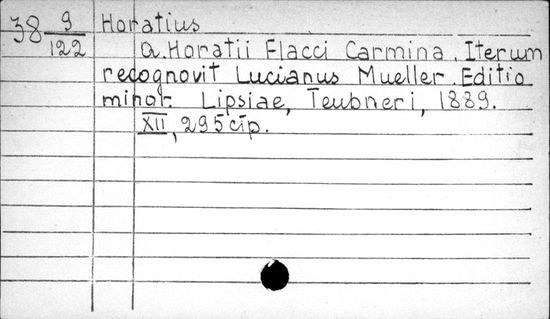 38 9/122 Horatius
Q. Horatii Flacci Carmina. Iterum
recognovit Lucianus Mueller. Editio
minor. Lipsiae, Teubneri, 1889.
XII, 295 стр.